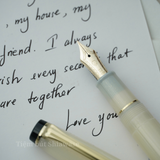 , my house, my
friend. I always
ish every second that
are together
Love you